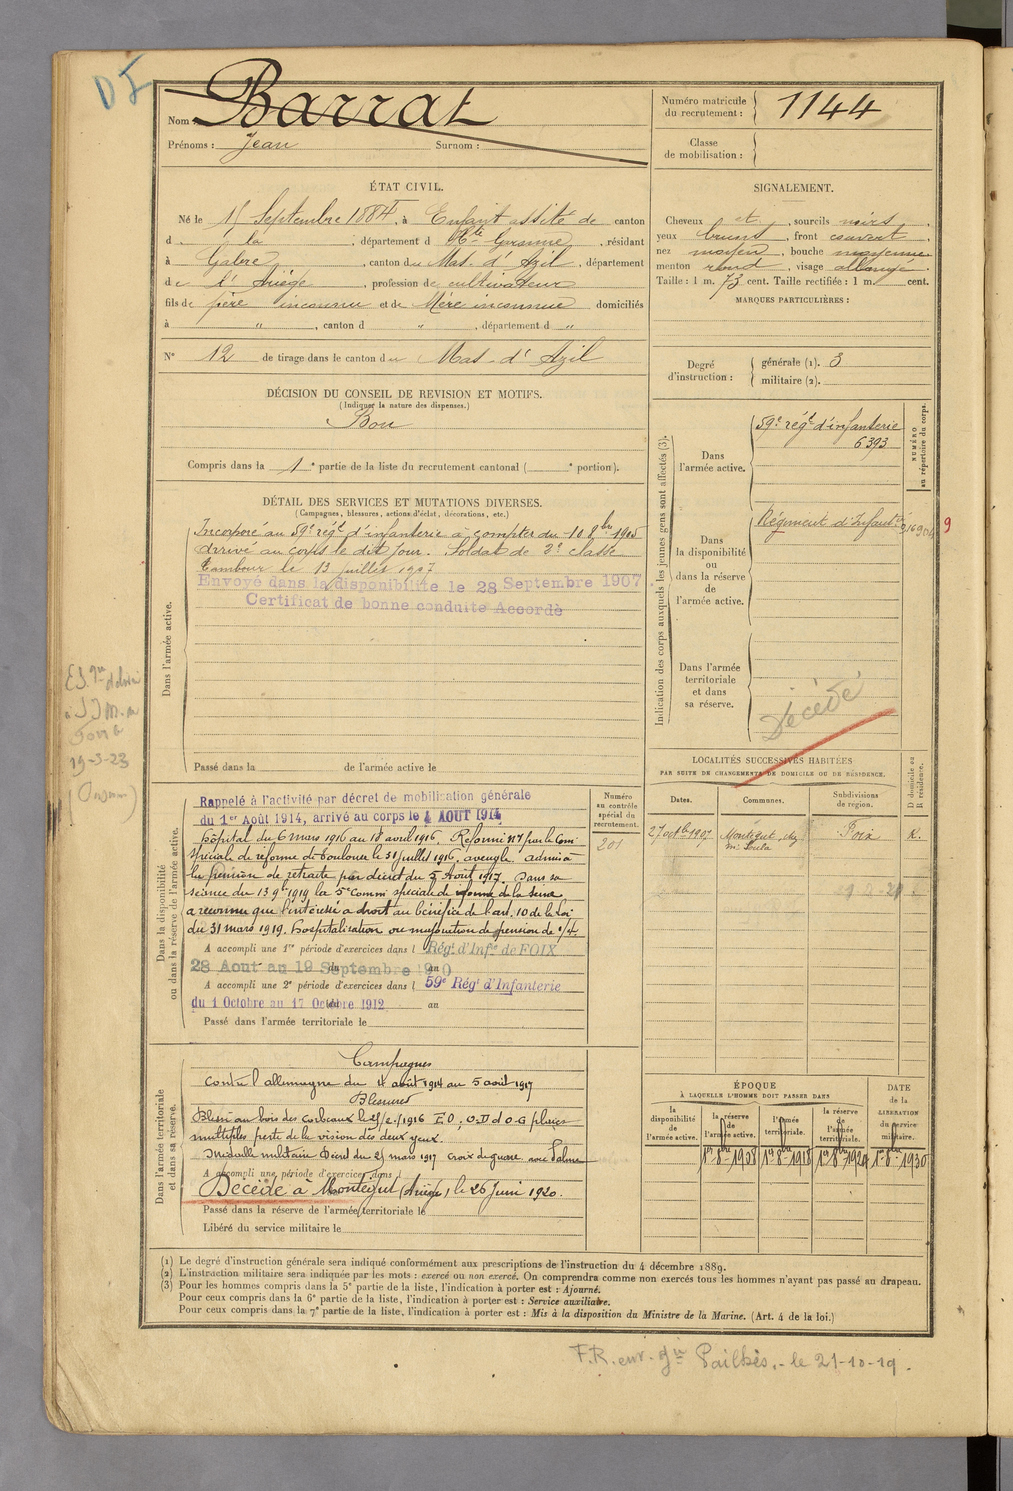 D I
Nom : Barrat
Prénoms : Jean Surnom :
Numéro matricule du recrutement : 1144
Classe de mobilisation :
ÉTAT CIVIL.
Né le 15 Septembre 1884, à Enfant assité de canton
d la , département d Hte Garonne, résidant
à Galere, canton du Mas-d'Azil, département
de l'Ariège, profession de cultivateur
fils de père inconnu et de Mère inconnue domiciliés
à " , canton d " , département d "
N° 12 de tirage dans le canton du Mas-d'Azil
SIGNALEMENT.
Cheveux et , sourcils noirs ,
yeux bruns , front couvert ,
nez moyen , bouche moyenne
menton rond , visage allongé .
Taille : 1 m. 73 cent. Taille rectifiée : 1 m. cent.
MARQUES PARTICULIÈRES :
Degré d'instruction : générale (1). 3
militaire (2).
DÉCISION DU CONSEIL DE REVISION ET MOTIFS.
(Indiquer la nature des dispenses.)
Bon
Compris dans la 1e partie de la liste du recrutement cantonal ( e portion).
DÉTAIL DES SERVICES ET MUTATIONS DIVERSES.
(Campagnes, blessures, actions d'éclat, décorations, etc.)
Dans l'armée active.
Incorporé au 59e régt d'infanterie à compter du 10 8bre 1905
arrivé au corps le dit jour. Soldat de 2e classe
Tambour le 13 juillet 1907
Envoyé dans la disponibilité le 28 Septembre 1907.
Certificat de bonne conduite Accordé
Passé dans la de l'armée active le
Indication des corps auxquels les jeunes gens sont affectés (3).
NUMÉRO au répertoire du corps.
Dans l'armée active.
59e régt d'infanterie
6393
Dans la disponibilité ou dans la réserve de l'armée active.
Régiment d'Infantie
9
Dans l'armée territoriale et dans sa réserve.
Décédé
19-3-23
LOCALITÉS SUCCESSIVES HABITÉES
PAR SUITE DE CHANGEMENTS DE DOMICILE OU DE RÉSIDENCE.
Dates. Communes. Subdivisions de region. D domicile ou R résidence.
27 octb 1907 Montégut, chez Mr Soula Foix R.
Dans la disponibilité ou dans la réserve de l'armée active.
Numéro au contrôle spécial du recrutement.
201
Rappelé à l'activité par décret de mobilisation générale
du 1er Août 1914, arrivé au corps le 4 AOUT 1914
hôpital du 6 mars 1916 au 18 avril 1916. Réformé N°1 par la Com
spéciale de réforme de Toulouse le 31 juillet 1916, aveugle. admis à
la pension de retraite par décret du 5 Août 1917. Dans sa
séance du 13 9b 1919 la 5e Commn spéciale de réforme de la Seine
a reconnu que l'intéressé a droit au bénéfice de l'art. 10 de la Loi
du 31 mars 1919. hospitalisation ou majoration de pension de 1/4.
A accompli une 1re période d'exercices dans l Régt d'Infie de FOIX
28 Aout au 19 Septembre 1910
A accompli une 2e période d'exercices dans l 59e Régt d'Infanterie
du 1 Octobre au 17 Octobre 1912 au
Passé dans l'armée territoriale le
Dans l'armée territoriale et dans sa réserve.
Campagnes
contre l'allemagne du 4 août 1914 au 5 août 1917
Blessures
Blessé au bois des corbeaux le 25/2/1916 E O, O.D et O.G plaies
multiples perte de la vision des deux yeux.
Médaille militaire Décret du 25 mars 1917 croix de guerre avec Palme
A accompli une période d'exercices dans l
Décédé à Montégut (Ariège) le 26 Juin 1920.
Passé dans la réserve de l'armée territoriale le
Libéré du service militaire le
ÉPOQUE
À LAQUELLE L'HOMME DOIT PASSER DANS
la disponibilité de l'armée active.
la réserve de l'armée active.
l'armée territoriale.
la réserve de l'armée territoriale.
DATE de la LIBERATION du service militaire.
1er 8bre 1908 1er 8bre 1918 1er 8bre 1924 1er 8bre 1930
(1) Le degré d'instruction générale sera indiqué conformément aux prescriptions de l'instruction du 4 décembre 1889.
(2) L'instruction militaire sera indiquée par les mots : exercé ou non exercé. On comprendra comme non exercés tous les hommes n'ayant pas passé au drapeau.
(3) Pour les hommes compris dans la 5e partie de la liste, l'indication à porter est : Ajourné.
Pour ceux compris dans la 6e partie de la liste, l'indication à porter est : Service auxiliaire.
Pour ceux compris dans la 7e partie de la liste, l'indication à porter est : Mis à la disposition du Ministre de la Marine. (Art. 4 de la loi.)
F.R. env. gie Pailhès. - le 21-10-19.